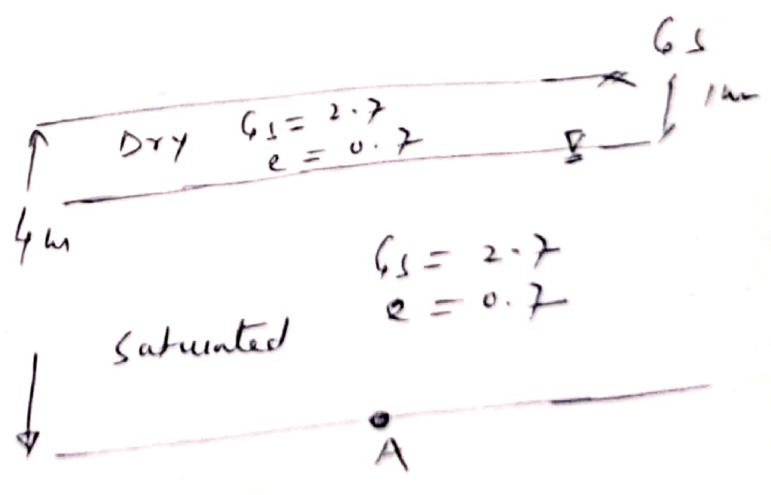 Gs
Dry Gs = 2.7
e = 0.7
1m
4m
Gs = 2.7
e = 0.7
Saturated
A